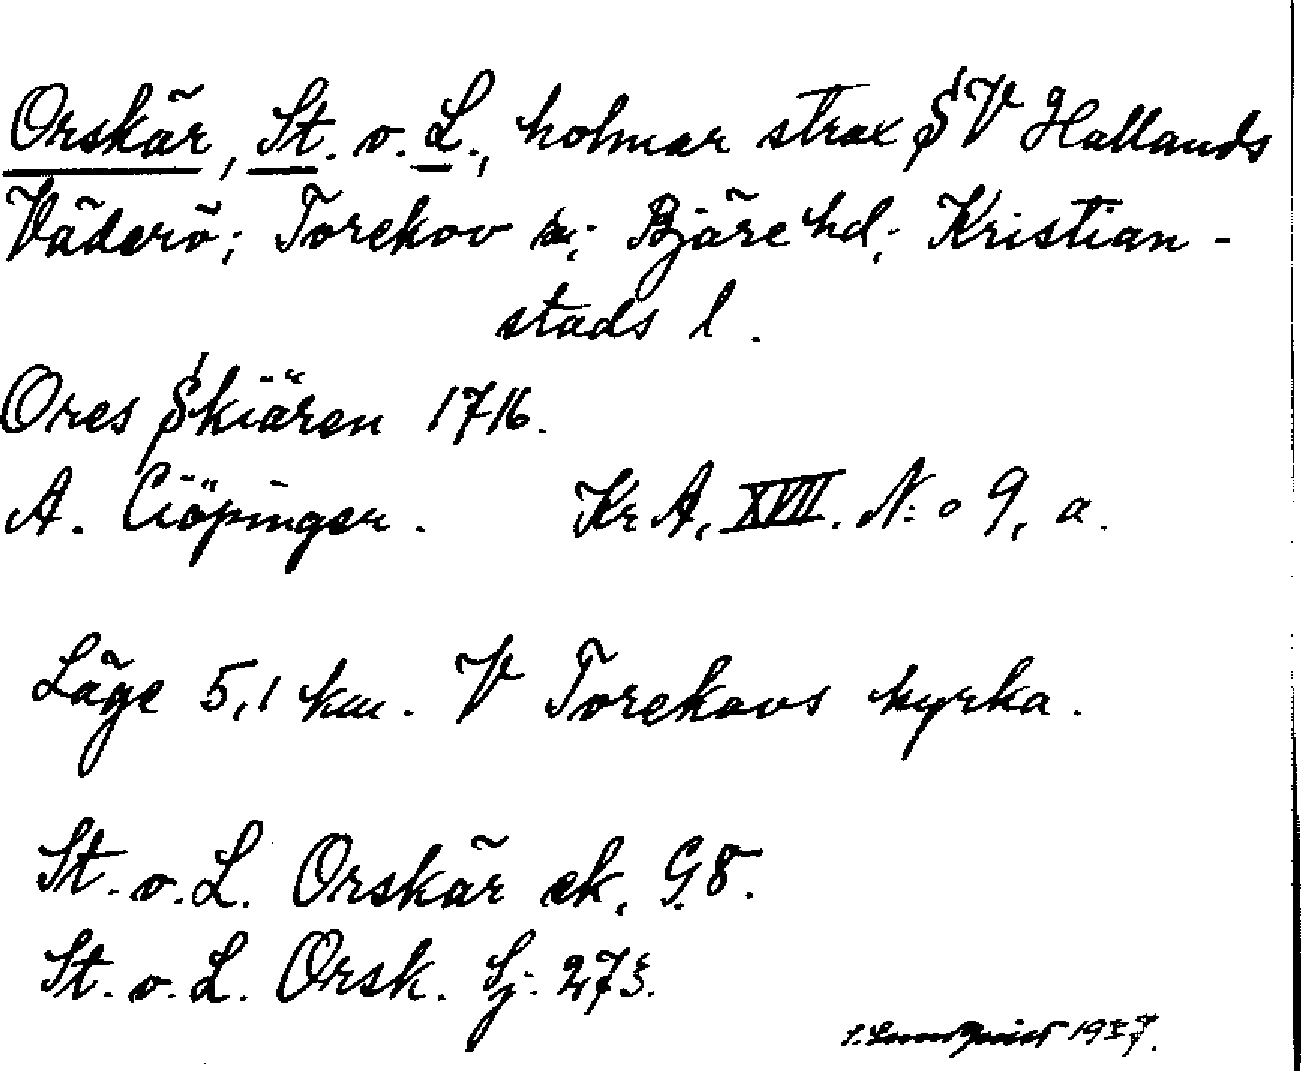 Orskär, St. o. L., holmar strax SV Hallands
Väderö; Torekov sn; Bjäre hd; Kristian-
stads l.
Ores Skiären 1716.
A. Ciöpinger. Kr A, XVII. N:o 9, a.
Läge 5,1 km. V Torekovs kyrka.
St. o. L. Orskär ek. G8.
St. o. L. Orsk. Sj. 273.
1937.